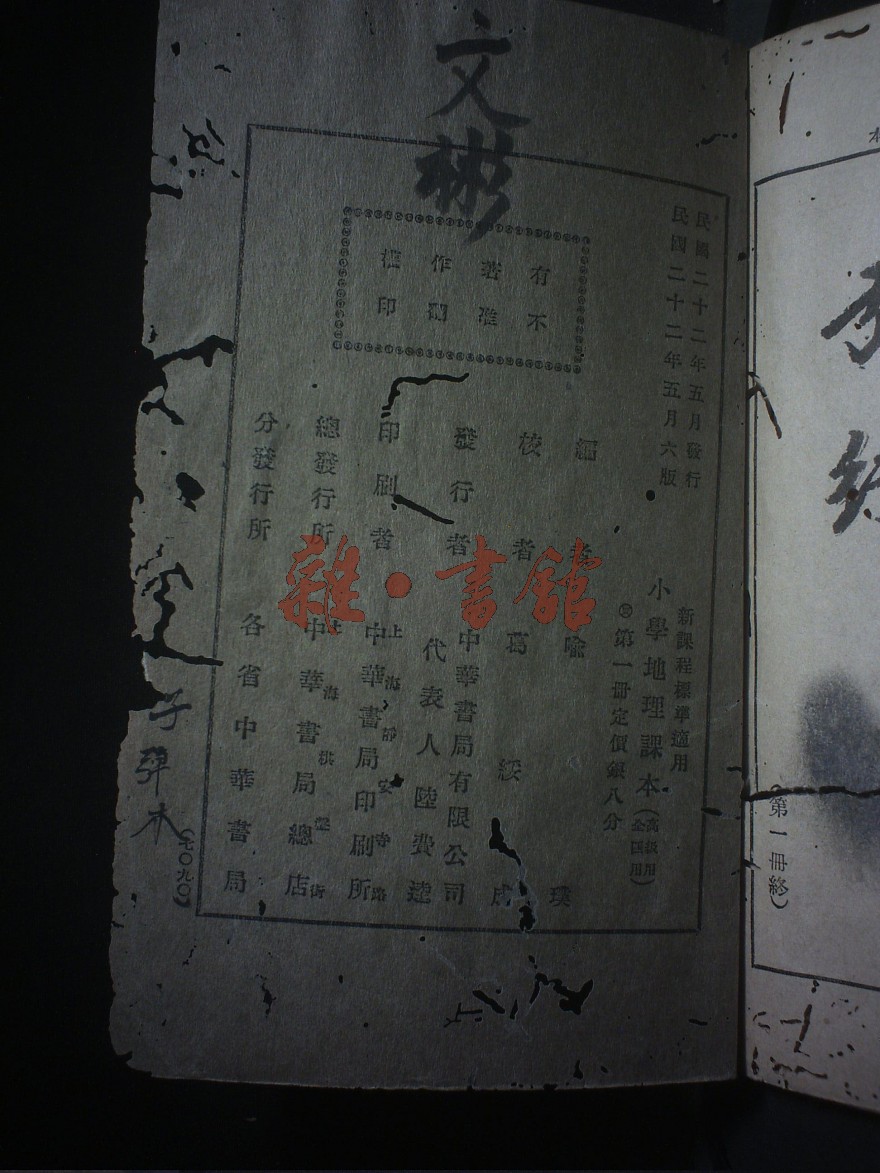 文彬
民國二十二年五月發行
民國二十二年五月六版
有著作權
不准翻印
新課程標準適用
小學地理課本(高級用 全國用)
第一冊定價銀八分
編者 喻 璞
校者 葛綏成
發行者 中華書局有限公司
代表人 陸費逵
印刷者 上海靜安寺路
中華書局印刷所
總發行所 上海棋盤街
中華書局總店
分發行所 各省中華書局
(七〇九〇)
(第一冊終)
本
雜·書館